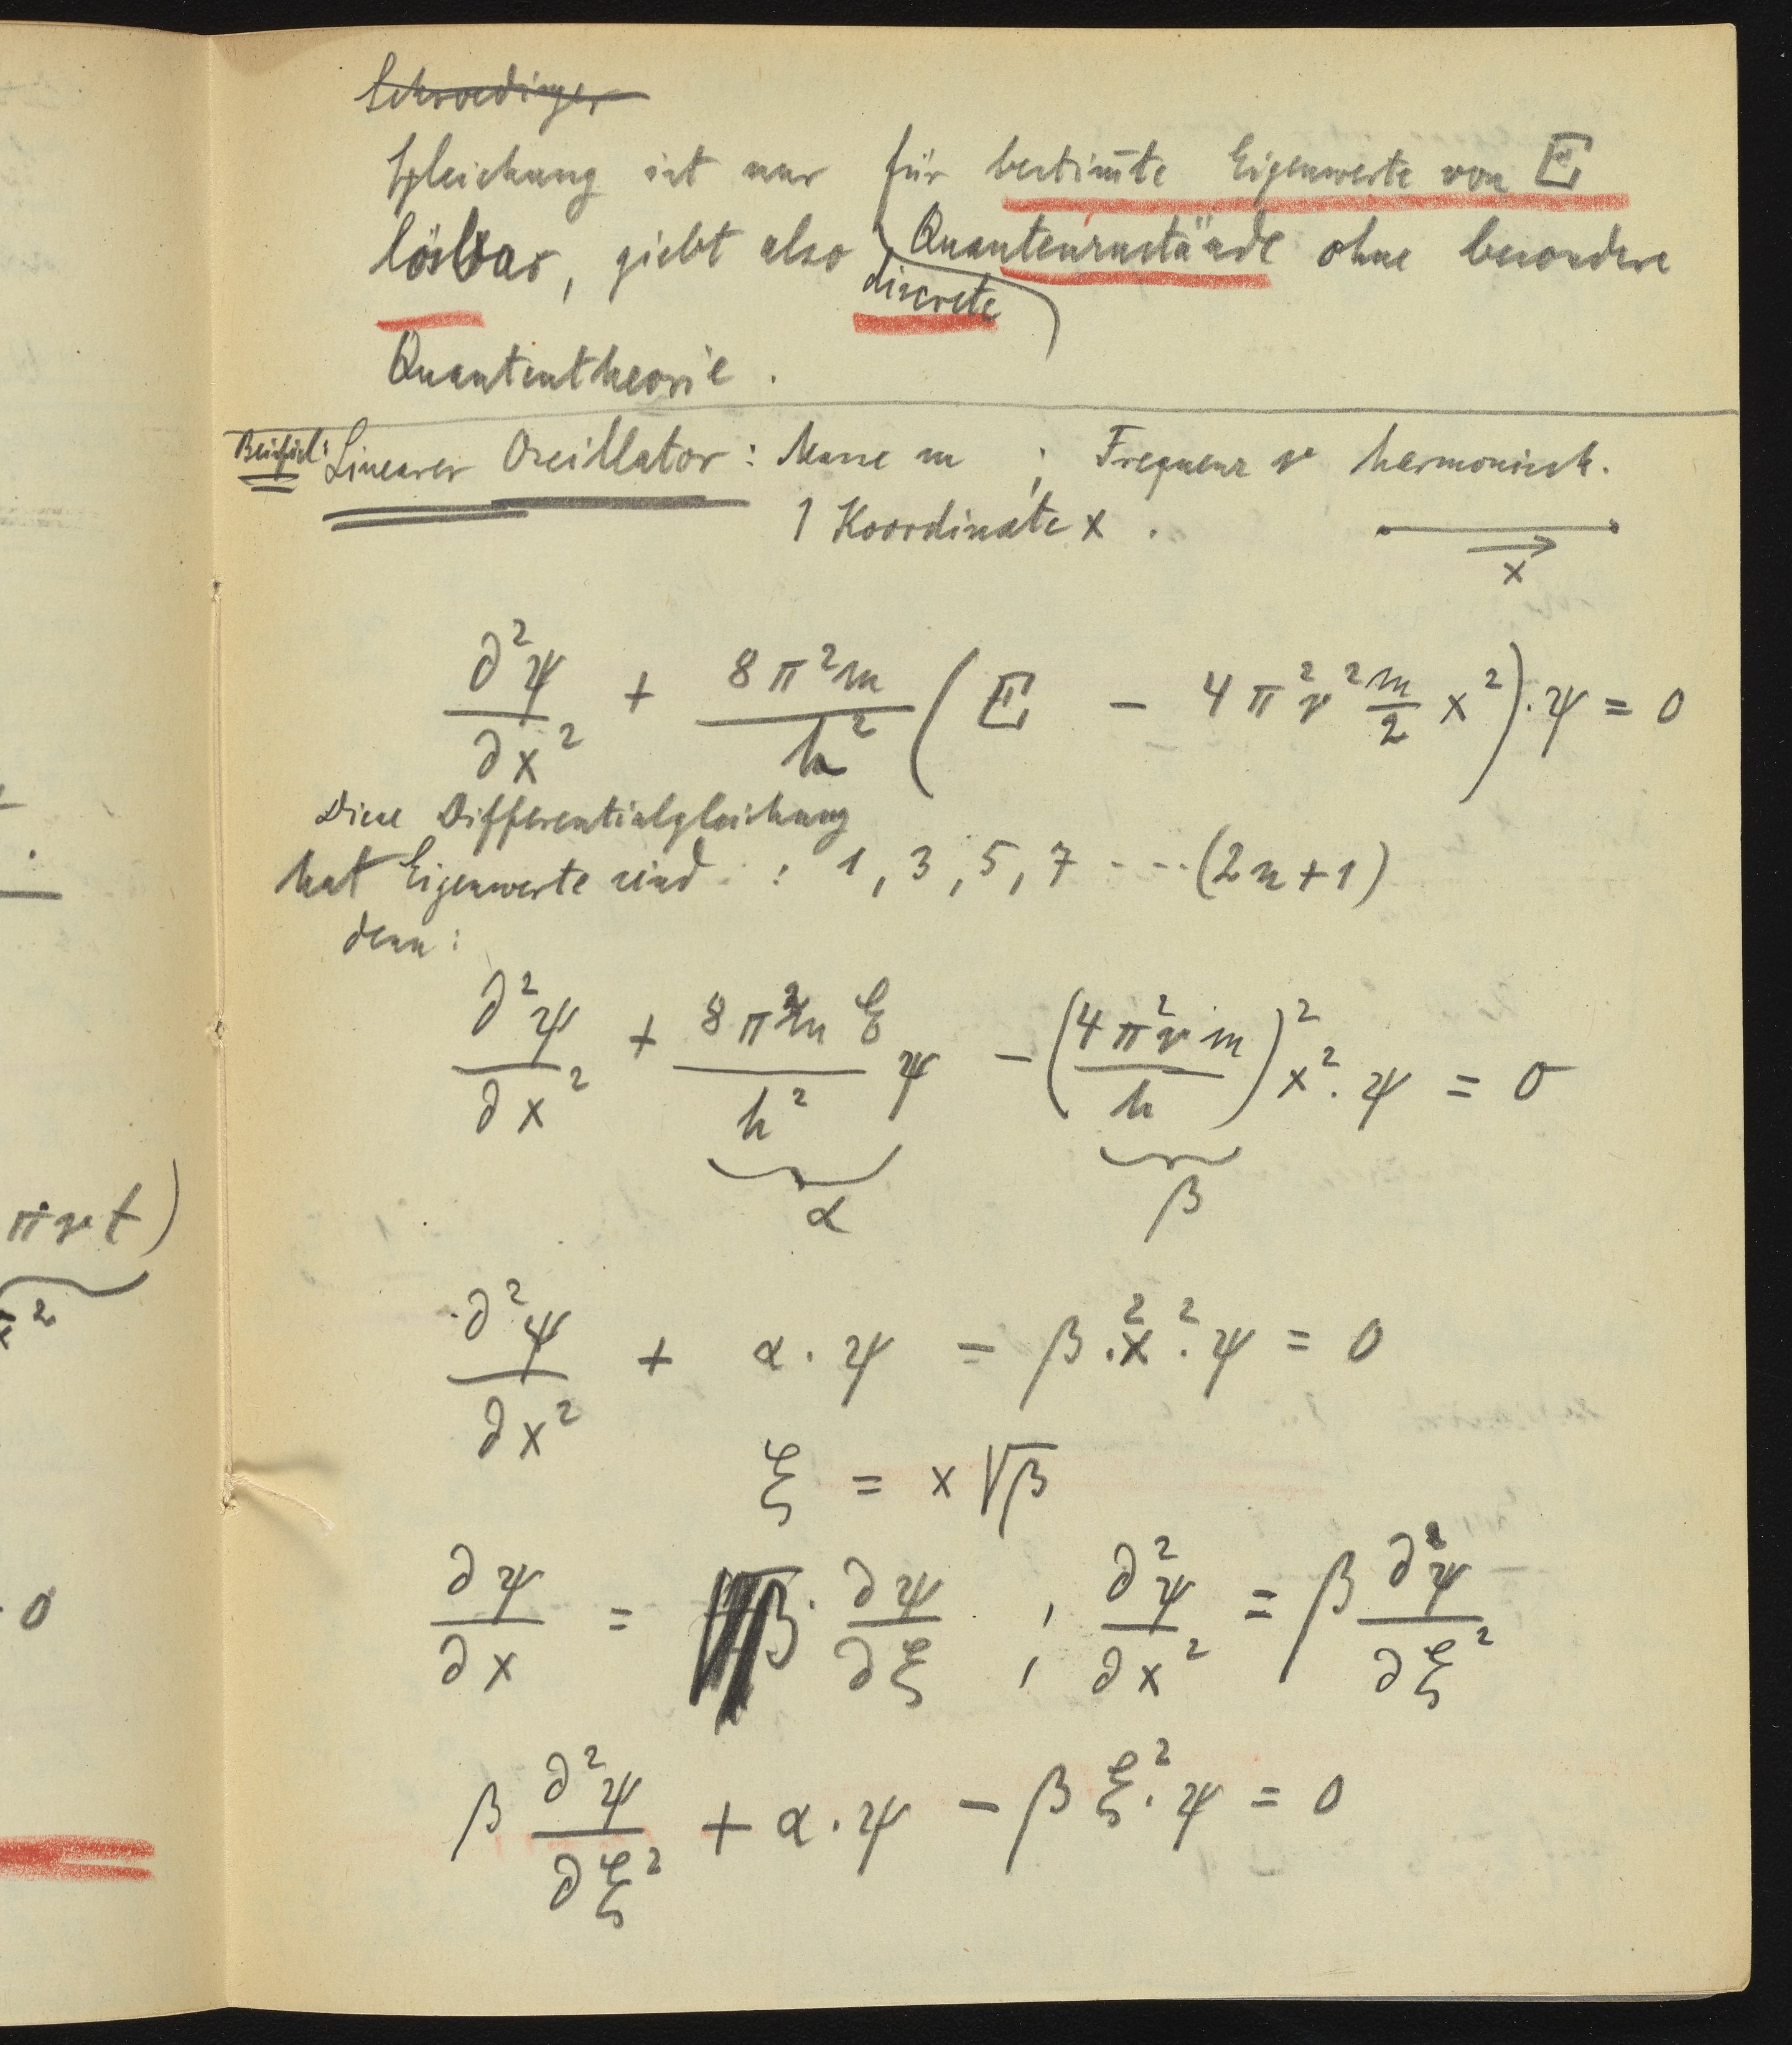 Schroedinger
Gleichung ist nur für bestim̄te Eigenwerte von E
lösbar, giebt also Quantenzustände ohne besondere
discrete
Quantentheorie.
Beispiel: Linearer Oscillator: Masse m ; Frequenz ν harmonisch.
1 Koordinate x.
x
∂²ψ/∂x² + 8π²m/h² (E − 4π²ν² m/2 x²)·ψ = 0
Diese Differentialgleichung
hat Eigenwerte sind : 1, 3, 5, 7 ---(2n+1)
denn:
∂²ψ/∂x² + 8π²m E/h² ψ − (4π²νm/h)² x²·ψ = 0
α β
∂²ψ/∂x² + α·ψ − β²·x²·ψ = 0
ξ = x√β
∂ψ/∂x = √β·∂ψ/∂ξ ; ∂²ψ/∂x² = β ∂²ψ/∂ξ²
β ∂²ψ/∂ξ² + α·ψ − β ξ²·ψ = 0
πνt)
x²
0